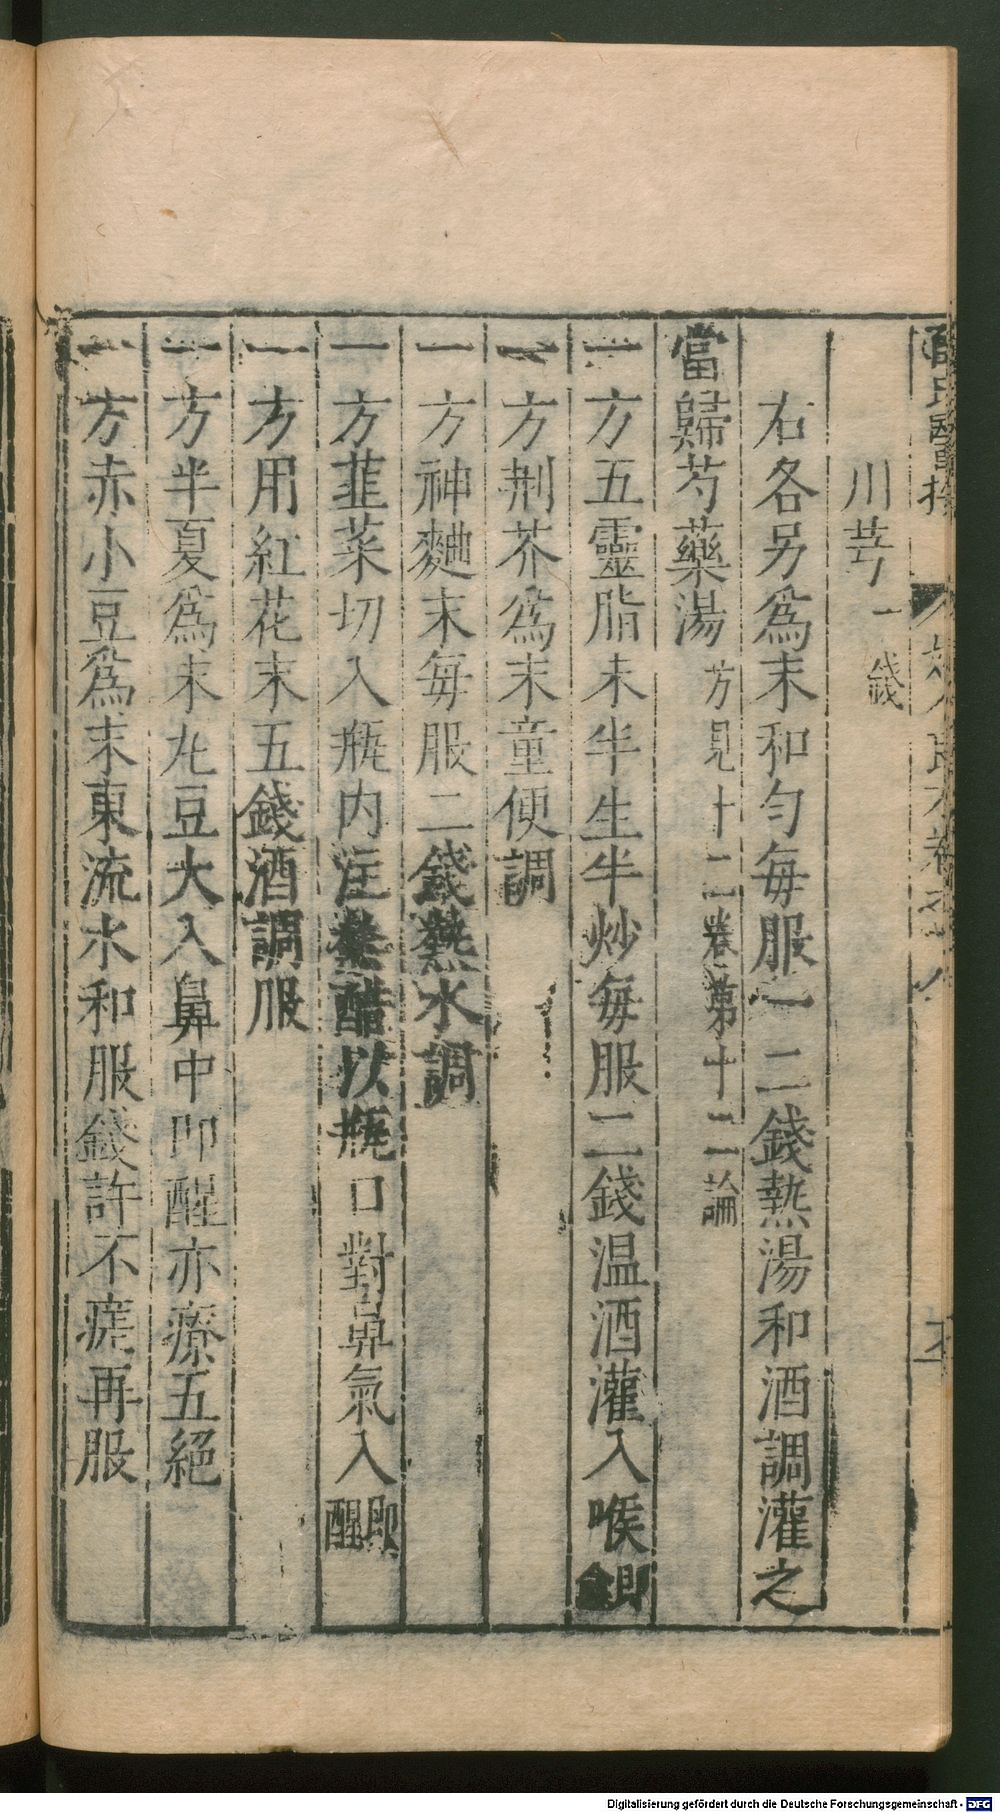 川芎一錢
右各另為末和勻每服一二錢熱湯和酒調灌之
當歸芍藥湯方見十二卷第十二論
一方五靈脂末半生半炒每服二錢温酒灌入喉即
一方荆芥為末童便調
一方神麯末每服二錢熱水調
一方韮菜切入瓶内注熱醋以瓶口對鼻氣入即醒
一方用紅花末五錢酒調服
一方半夏為末丸豆大入鼻中即醒亦療五絕
一方赤小豆為末東流水和服錢許不瘥再服
Digitalisierung gefördert durch die Deutsche Forschungsgemeinschaft - DFG